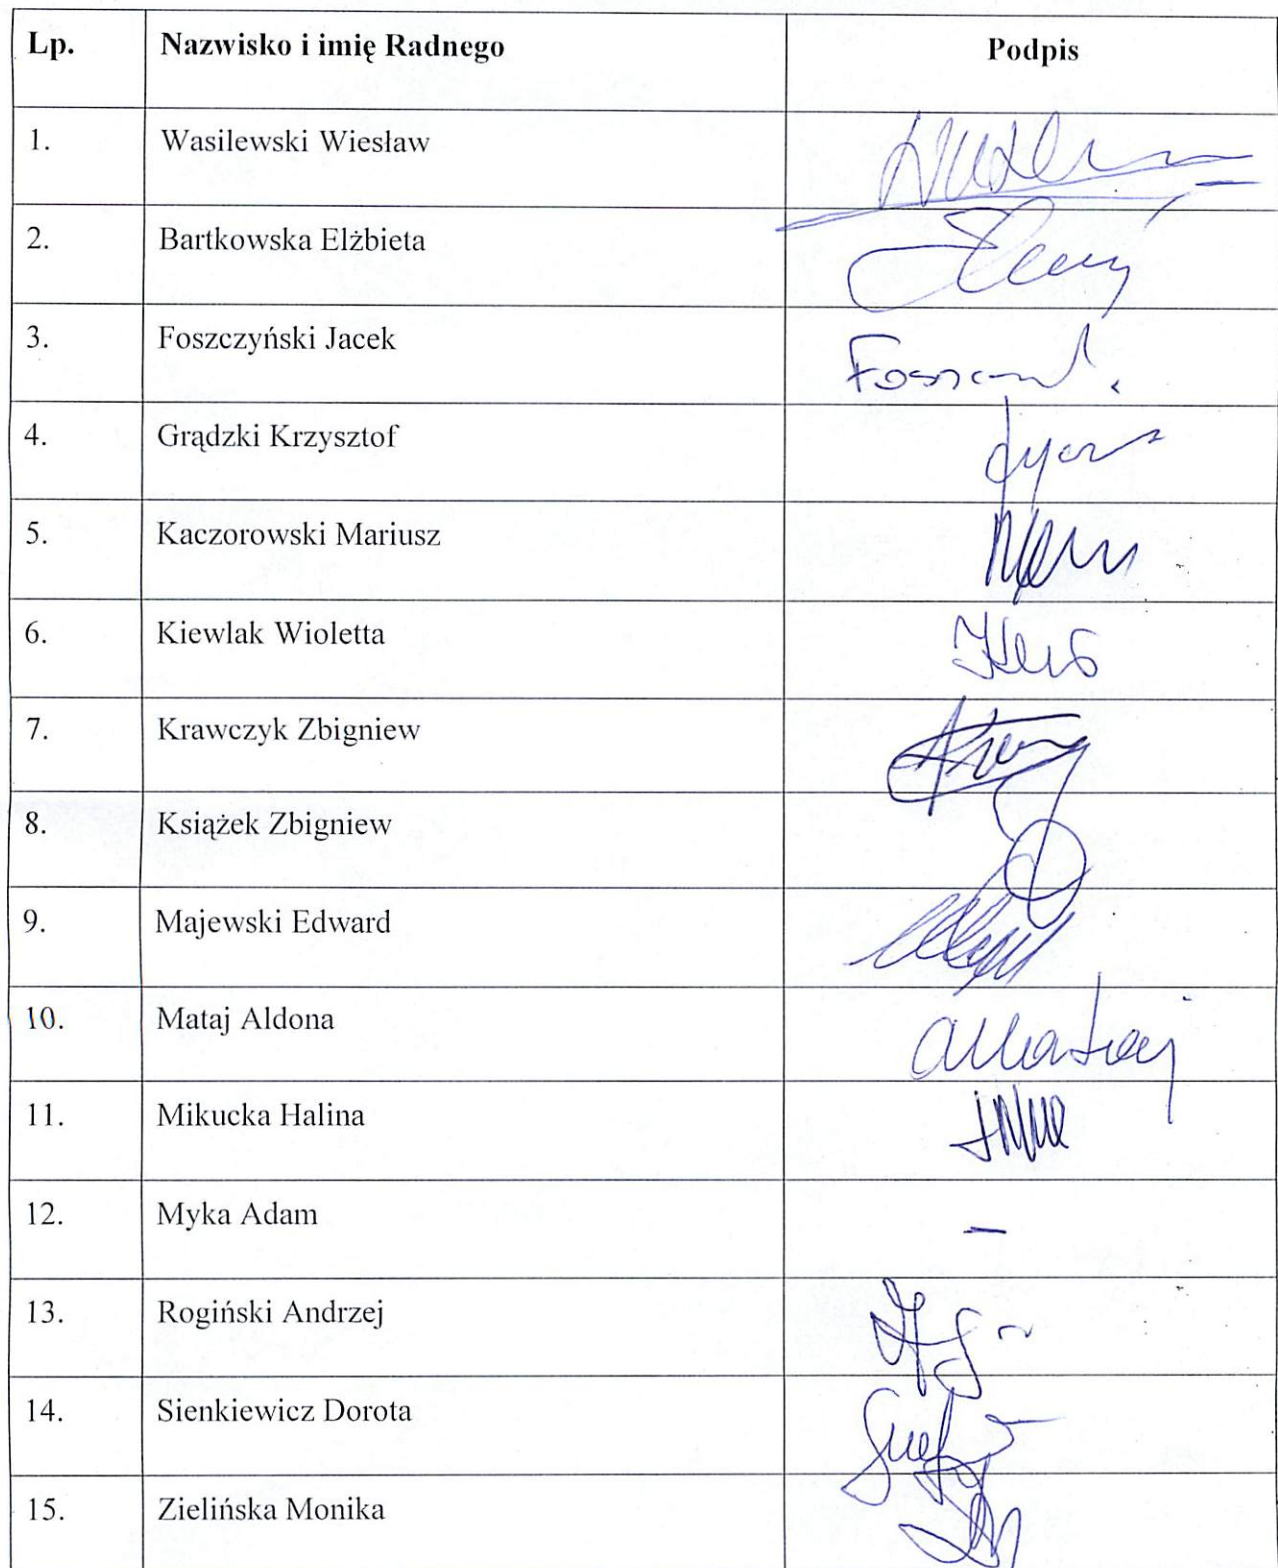 Lp. Nazwisko i imię Radnego Podpis
1. Wasilewski Wiesław
2. Bartkowska Elżbieta
3. Foszczyński Jacek
4. Grądzki Krzysztof
5. Kaczorowski Mariusz
6. Kiewlak Wioletta
7. Krawczyk Zbigniew
8. Książek Zbigniew
9. Majewski Edward
10. Mataj Aldona
11. Mikucka Halina
12. Myka Adam –
13. Rogiński Andrzej
14. Sienkiewicz Dorota
15. Zielińska Monika